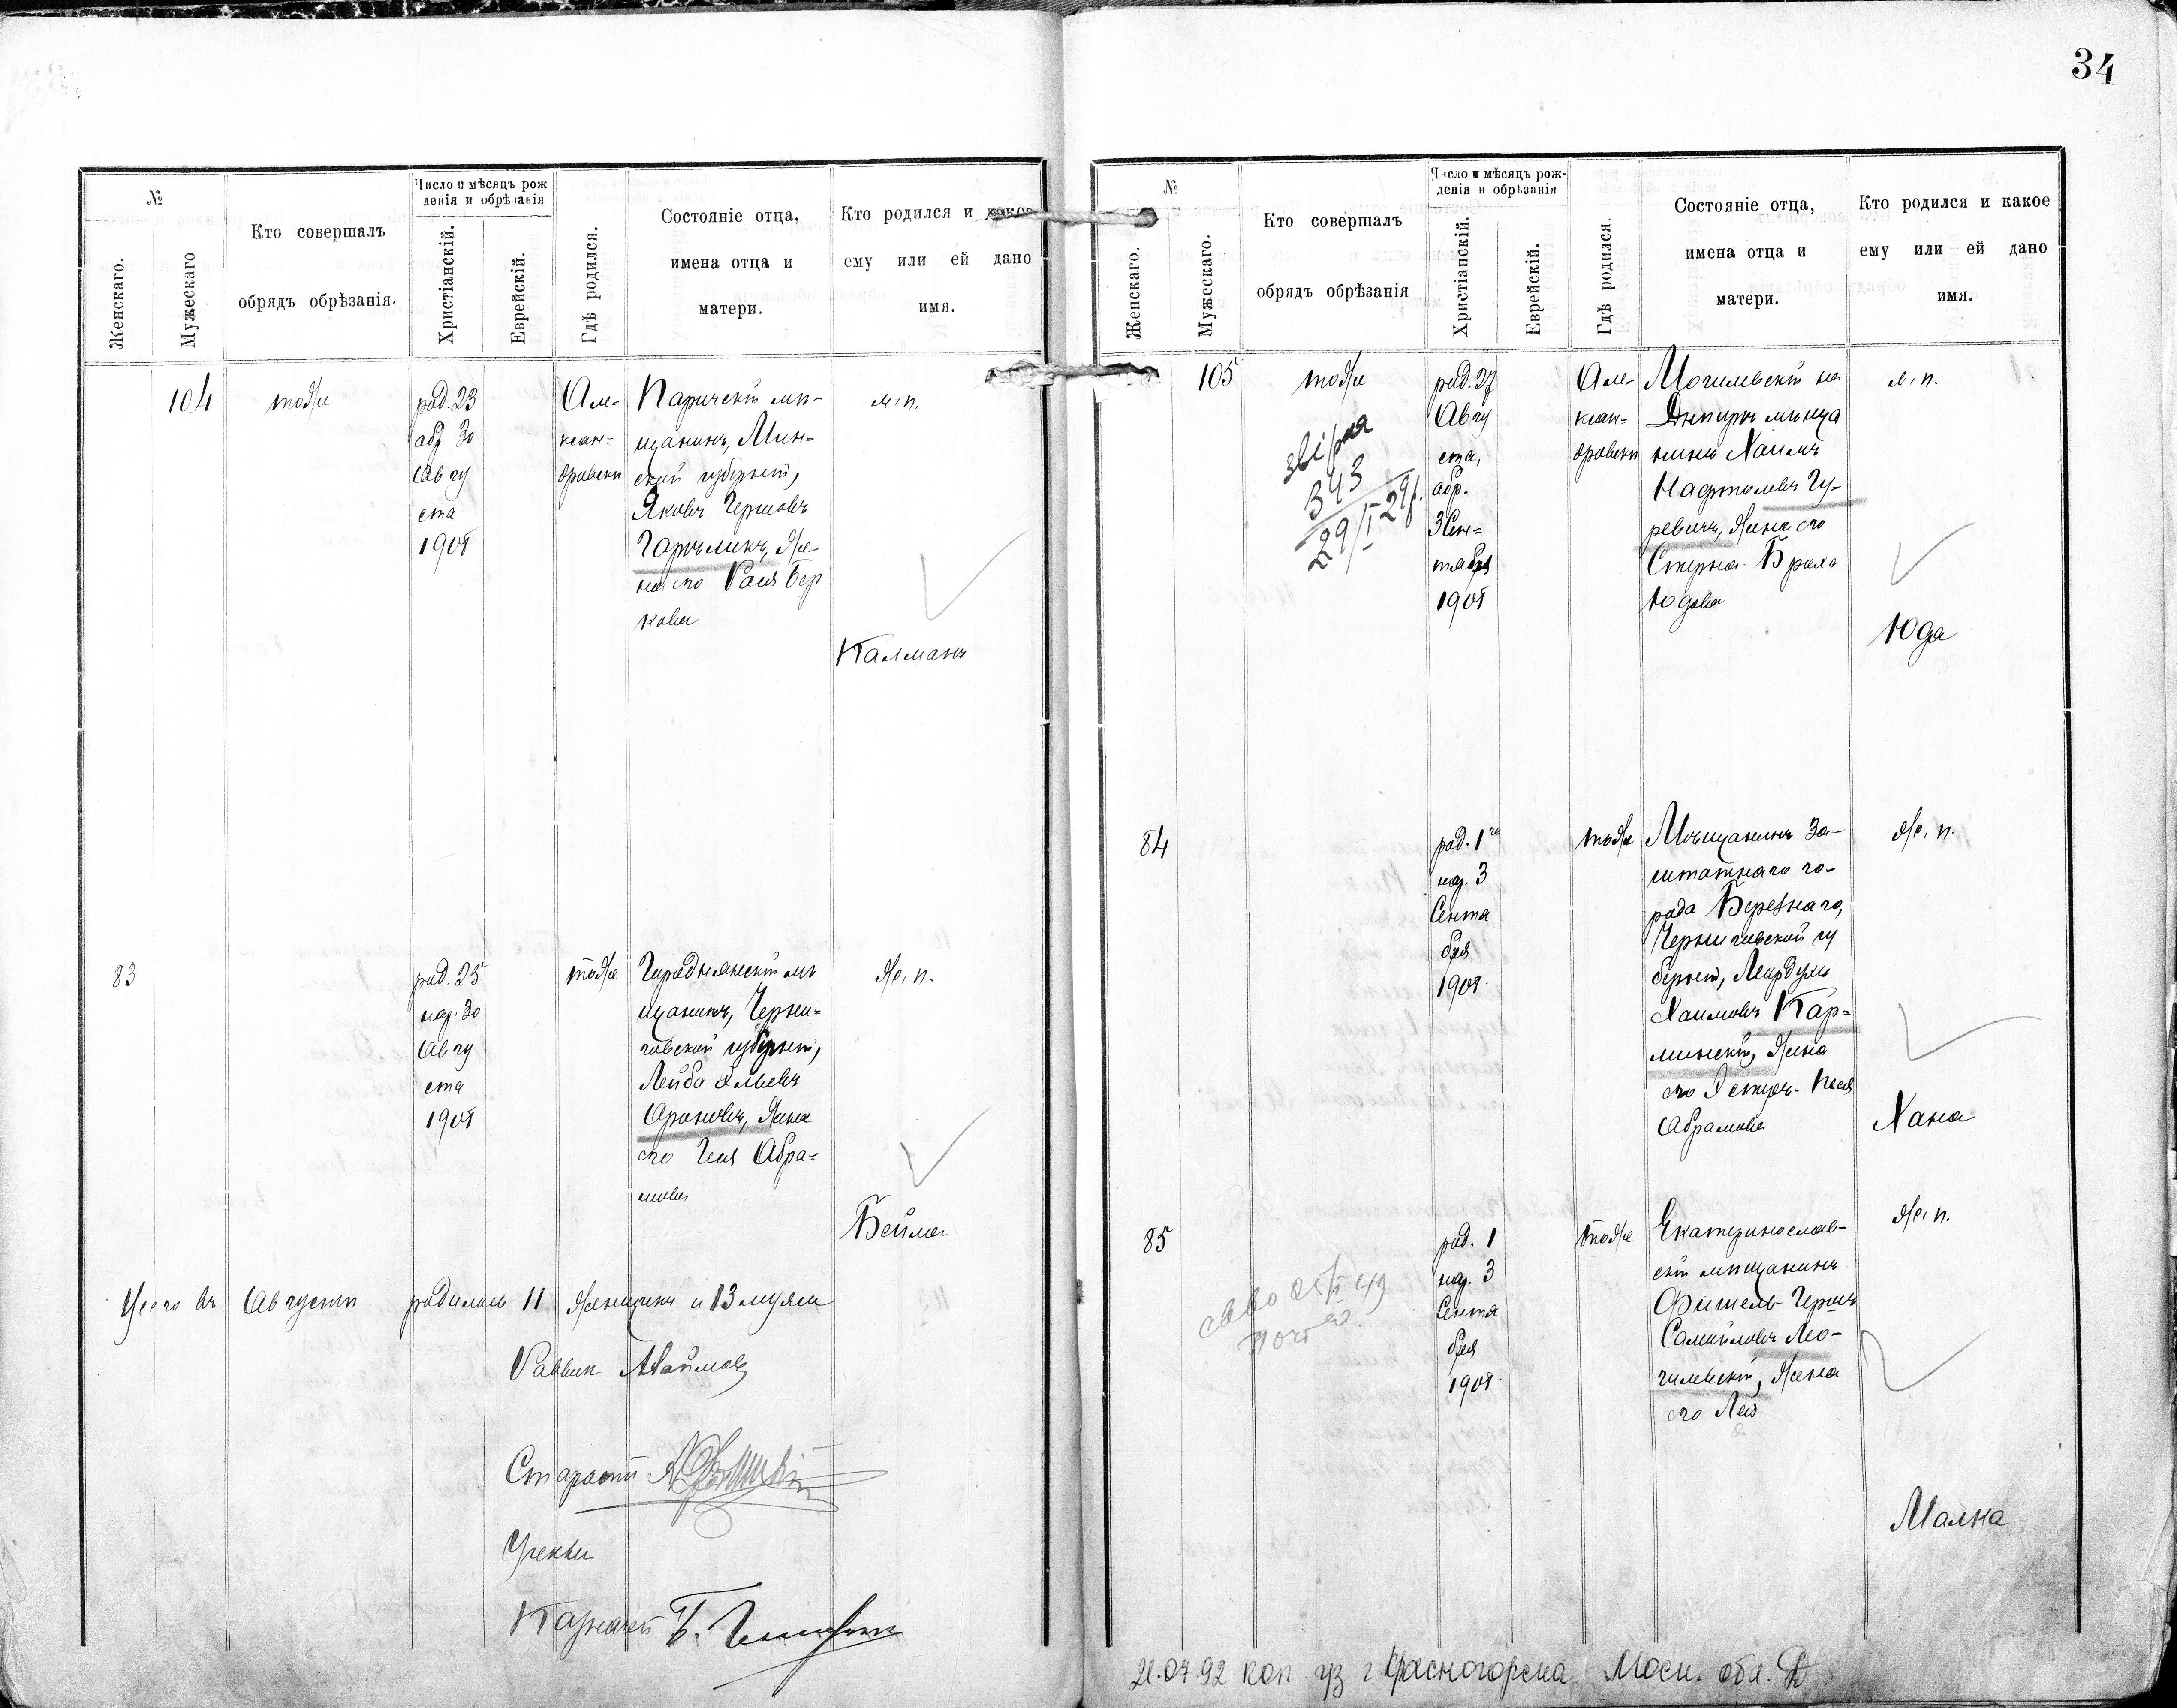 34
№
Женскаго.
Мужескаго
Кто совершалъ
обрядъ обрѣзанія.
Число и мѣсяцъ рож
денія и обрѣзанія
Христіанскій.
Еврейскій.
Гдѣ родился.
Состояніе отца,
имена отца и
матери.
Кто родился и какое
ему или ей дано
имя.
104
тоже
род. 23
обр 30
Авгу
ста
1908
Але-
ксан-
дровскѣ
Паричскій мѣ-
щанинъ, Мин-
ской губерніи,
Яковъ Гершовъ
Гарѣликъ, же-
на его Рася Бер
кова
м. п.
Калманъ
83
род. 25
нар. 30
Авгу
ста
1908
тоже
Городнянскій мѣ
щанинъ, Черни-
говской губерніи,
Лейба
Ароновъ, жена
его Геся Абра-
мова
ж. п.
Бейла
Всего въ Августѣ родилось 11 женщинъ и 13 мужч
Раввин
Староста
Ученый
Казначей
№
Женскаго.
Мужескаго.
Кто совершалъ
обрядъ обрѣзанія
Число и мѣсяцъ рож-
денія и обрѣзанія
Христіанскій.
Еврейскій.
Гдѣ родился.
Состояніе отца,
имена отца и
матери.
Кто родился и какое
ему или ей дано
имя.
105
тоже
343
29/I 29р.
род. 27
Авгу
ста,
обр.
3 Сен-
тября
1908
Але-
ксан-
дровскѣ
Могилевскій на
Днѣпрѣ мѣща
нинъ Хаимъ
Нафтолевъ Гу-
ревичъ, жена его
Стерна-Браха
Юдова
м. п.
Юда
84
род. 1го
нар. 3
Сентя
бря
1908
тоже
Мѣщанинъ За-
штатнаго го-
рода Березнаго,
Черниговской гу
берніи, Мордухъ
Хаимовъ Кар-
линскій, жена
его Эстеръ-Песя
Абрамова
ж. п.
Хана
85
род. 1
нар. 3
Сентя
бря
1908
тоже
Екатеринослав-
скій мѣщанинъ
Фишель-Гершъ
Самойловъ Мо-
гилевскій, жена
его Лея
ж. п.
Малка
21.04.92 коп. г Красногорска Моск. обл.